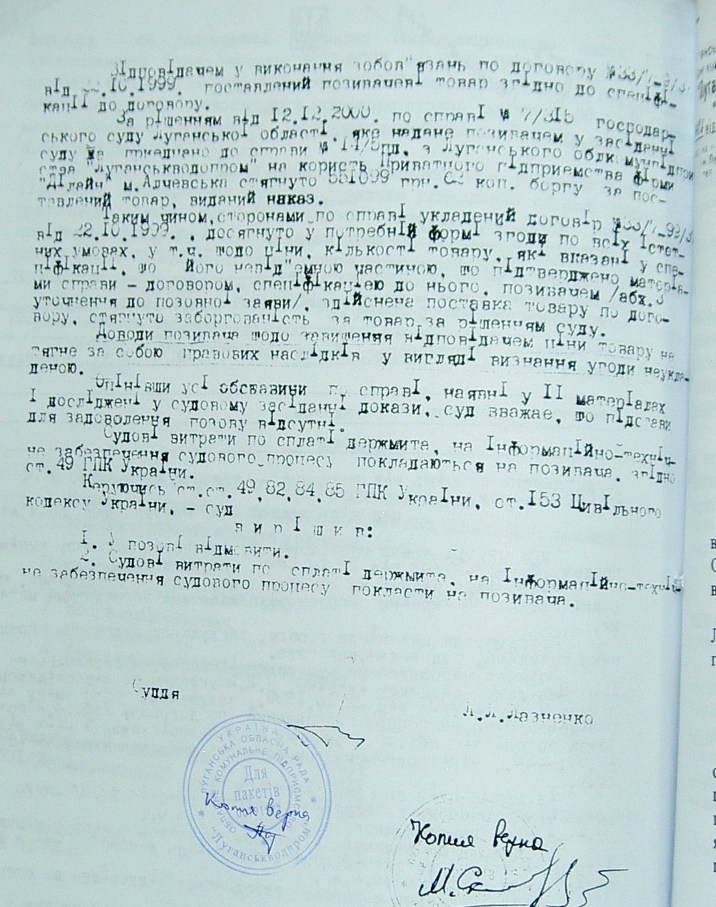 Відповідачем у виконання зобов"язань по договору №33/7-9
від 22.10.1999. поставлений позивачеві товар згідно до специфі-
кації до договору.
За рішенням від 12.12.2000. по справі № 7/315 господар-
ського суду Луганської області, яке надане позивачем у засіданні
суду та приєднано до справи № 14/5пд. з Луганського облкомунпідпри
ства "Луганськводпром" на користь Приватного підприємства фірми
м.Алчевська стягнуто 551099 грн. коп. боргу за пос-
тавлений товар, виданий наказ.
Таким чином,сторонами по справі укладений договір №33/7-99/3
від 22.10.1999., досягнуто у потребній формі згоди по всіх істот-
них умовах, у т.ч. щодо ціни, кількості товару, які вказані у спе-
цифікації, що його невід"ємною частиною, що підтверджено матеріа-
ми справи - договором, специфікацією до нього, позивачем /абх.3
уточнення до позовної заяви/, здійснена поставка товару по дого-
вору, стягнуто заборгованість за товар за рішенням суду.
Доводи позивача щодо завищення відповідачем ціни товару не
тягне за собою правових наслідків у вигляді визнання угоди неукла-
деною.
Оцінівши усі обставини по справі, наявні у ІІ матеріалах
і досліджені у судовому засіданні докази, суд вважає, що підстави
для задоволення позову відсутні.
Судові витрати по сплаті держмита, на інформаційно-техніч-
не забезпечення судового процесу покладаються на позивача, згідно
ст.49 ГПК України.
Керуючись ст.ст.49,82,84,85 ГПК України, ст.153 Цивільного
кодексу України, - суд
вирішив:
1. У позові відмовити.
2. Судові витрати по сплаті держмита, на інформаційно-техніч-
не забезпечення судового процесу покласти на позивача.
Суддя
Л.Л.Лазненко
УКРАЇНА
ЛУГАНСЬКА ОБЛАСНА РАДА
КОМУНАЛЬНЕ ПІДПРИЄМСТВО
Для
пакетів
"Луганськводпром"
Копия верна
Копия верна